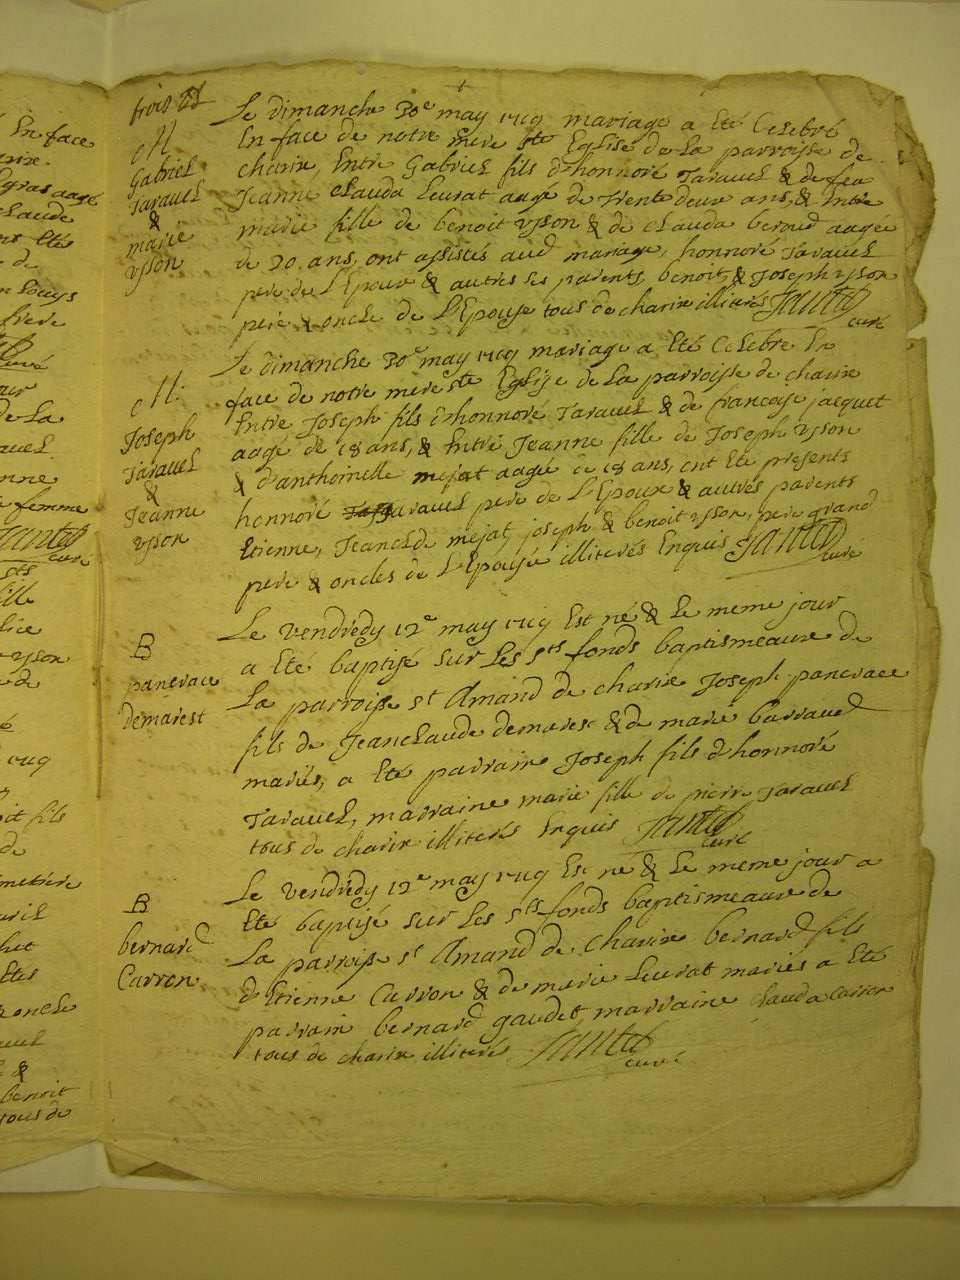 En face
gras aagé
claude
ans Eté
de
Louys
frere
curé
de La
femme
Santa
curé
fille
yson
1719
fils
de
oncle
&
benoit
tous de
trois
M
Gabriel
Taravel
&
marie
yson
Le dimanche 30e may 1719 mariage a Eté Celebré
En face de notre mere ste Eglise de La parroisse de
charix, Entre Gabriel fils d'honnoré Taravel & de feu
Jeanne clauda Leurat aagé de trente deux ans, & Entre
marie fille de benoit yson & de clauda beroud aagée
de 20 ans, ont assistés aud mariage, honnoré Taravel
pere de L'Epoux & autres ses parents, benoit & Joseph yson
pere & oncle de L'Epouse tous de charix illiterés
curé
M.
Joseph
Taravel
&
Jeanne
yson
Le dimanche 30e may 1719 mariage a Eté Celebre En
face de notre mere ste Eglise de La parroisse de charix
Entre Joseph fils d'honnoré Taravel & de francoise jacquet
aagé de 18 ans, & Entre Jeanne fille de Joseph yson
& d'anthoinette mejat aagée de 18 ans, ont Eté presents
honnoré Taravel pere de L'Epoux & autres parents
Etienne, Jeanclde mejat, joseph & benoit yson, pere grand
pere & oncles de L'Epouse illiterés Enquis
curé
B
pancrace
demarest
Le vendredy 12e may 1719 Est né & Le meme jour
a Eté baptisé sur Les sts fonds baptismeaux de
La parroisse st Amand de charix Joseph pancrace
fils de Jeanclaude demarest & de marie barravel
mariés, a Eté parrain Joseph fils d'honnoré
Taravel, marraine marie fille de pierre Taravel
tous de charix illiterés Enquis
curé
B
bernard
Carron
Le vendredy 12e may 1719 Est né & Le meme jour a
Eté baptisé sur Les sts fonds baptismeaux de
La parroisse st Amand de charix bernard fils
d'Etienne Carron & de marie Leurat mariés a Eté
parrain bernard gaudet marraine clauda carron
tous de charix illiterés
curé